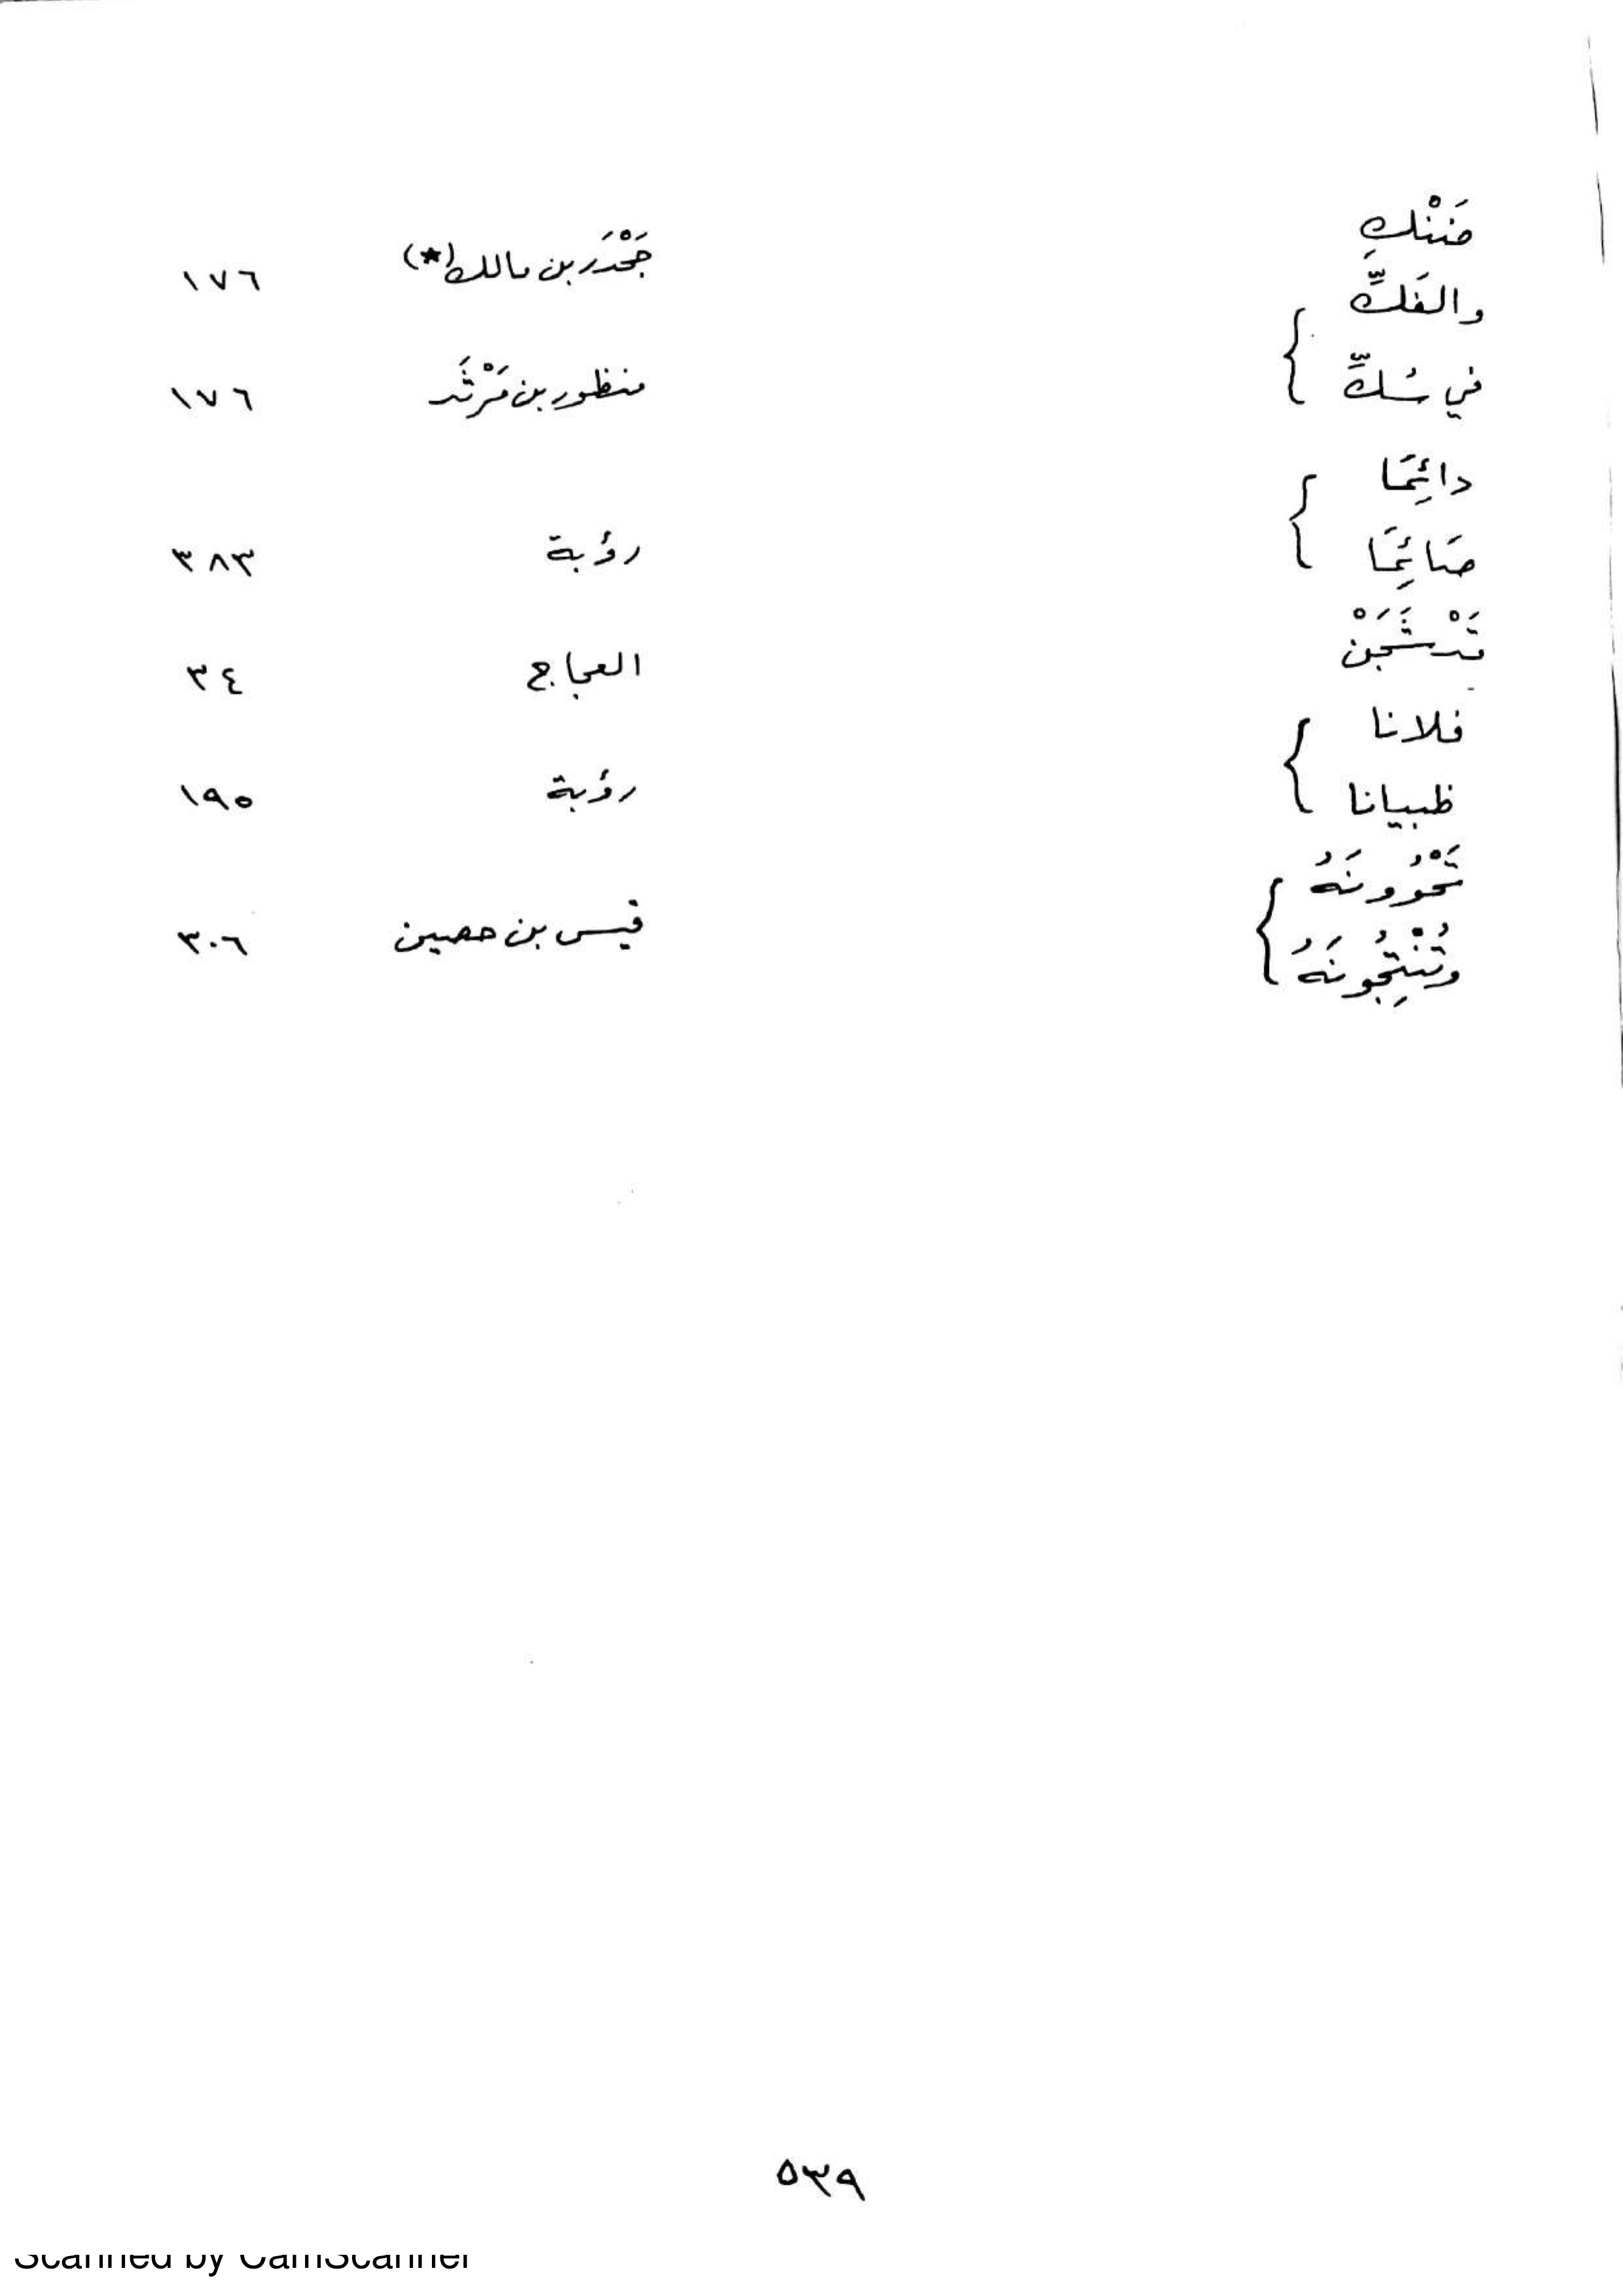 ضَنْكِ جَحْدَر بن مالك (★) ١٧٦
والفَكِّ
في سُكِّ منظور بن مَرْثَد ١٧٦
دائِمَا
صَائِمَا رؤبة ٣٨٣
قَدْ شَجَنْ العجاج ٣٤
فلانا
ظبيانا رؤبة ١٩٥
تَحْوُونَهُ
وتُنْتِجُونَهُ قيس بن حصين ٣٠٦
٥٣٩
Scanned by CamScanner